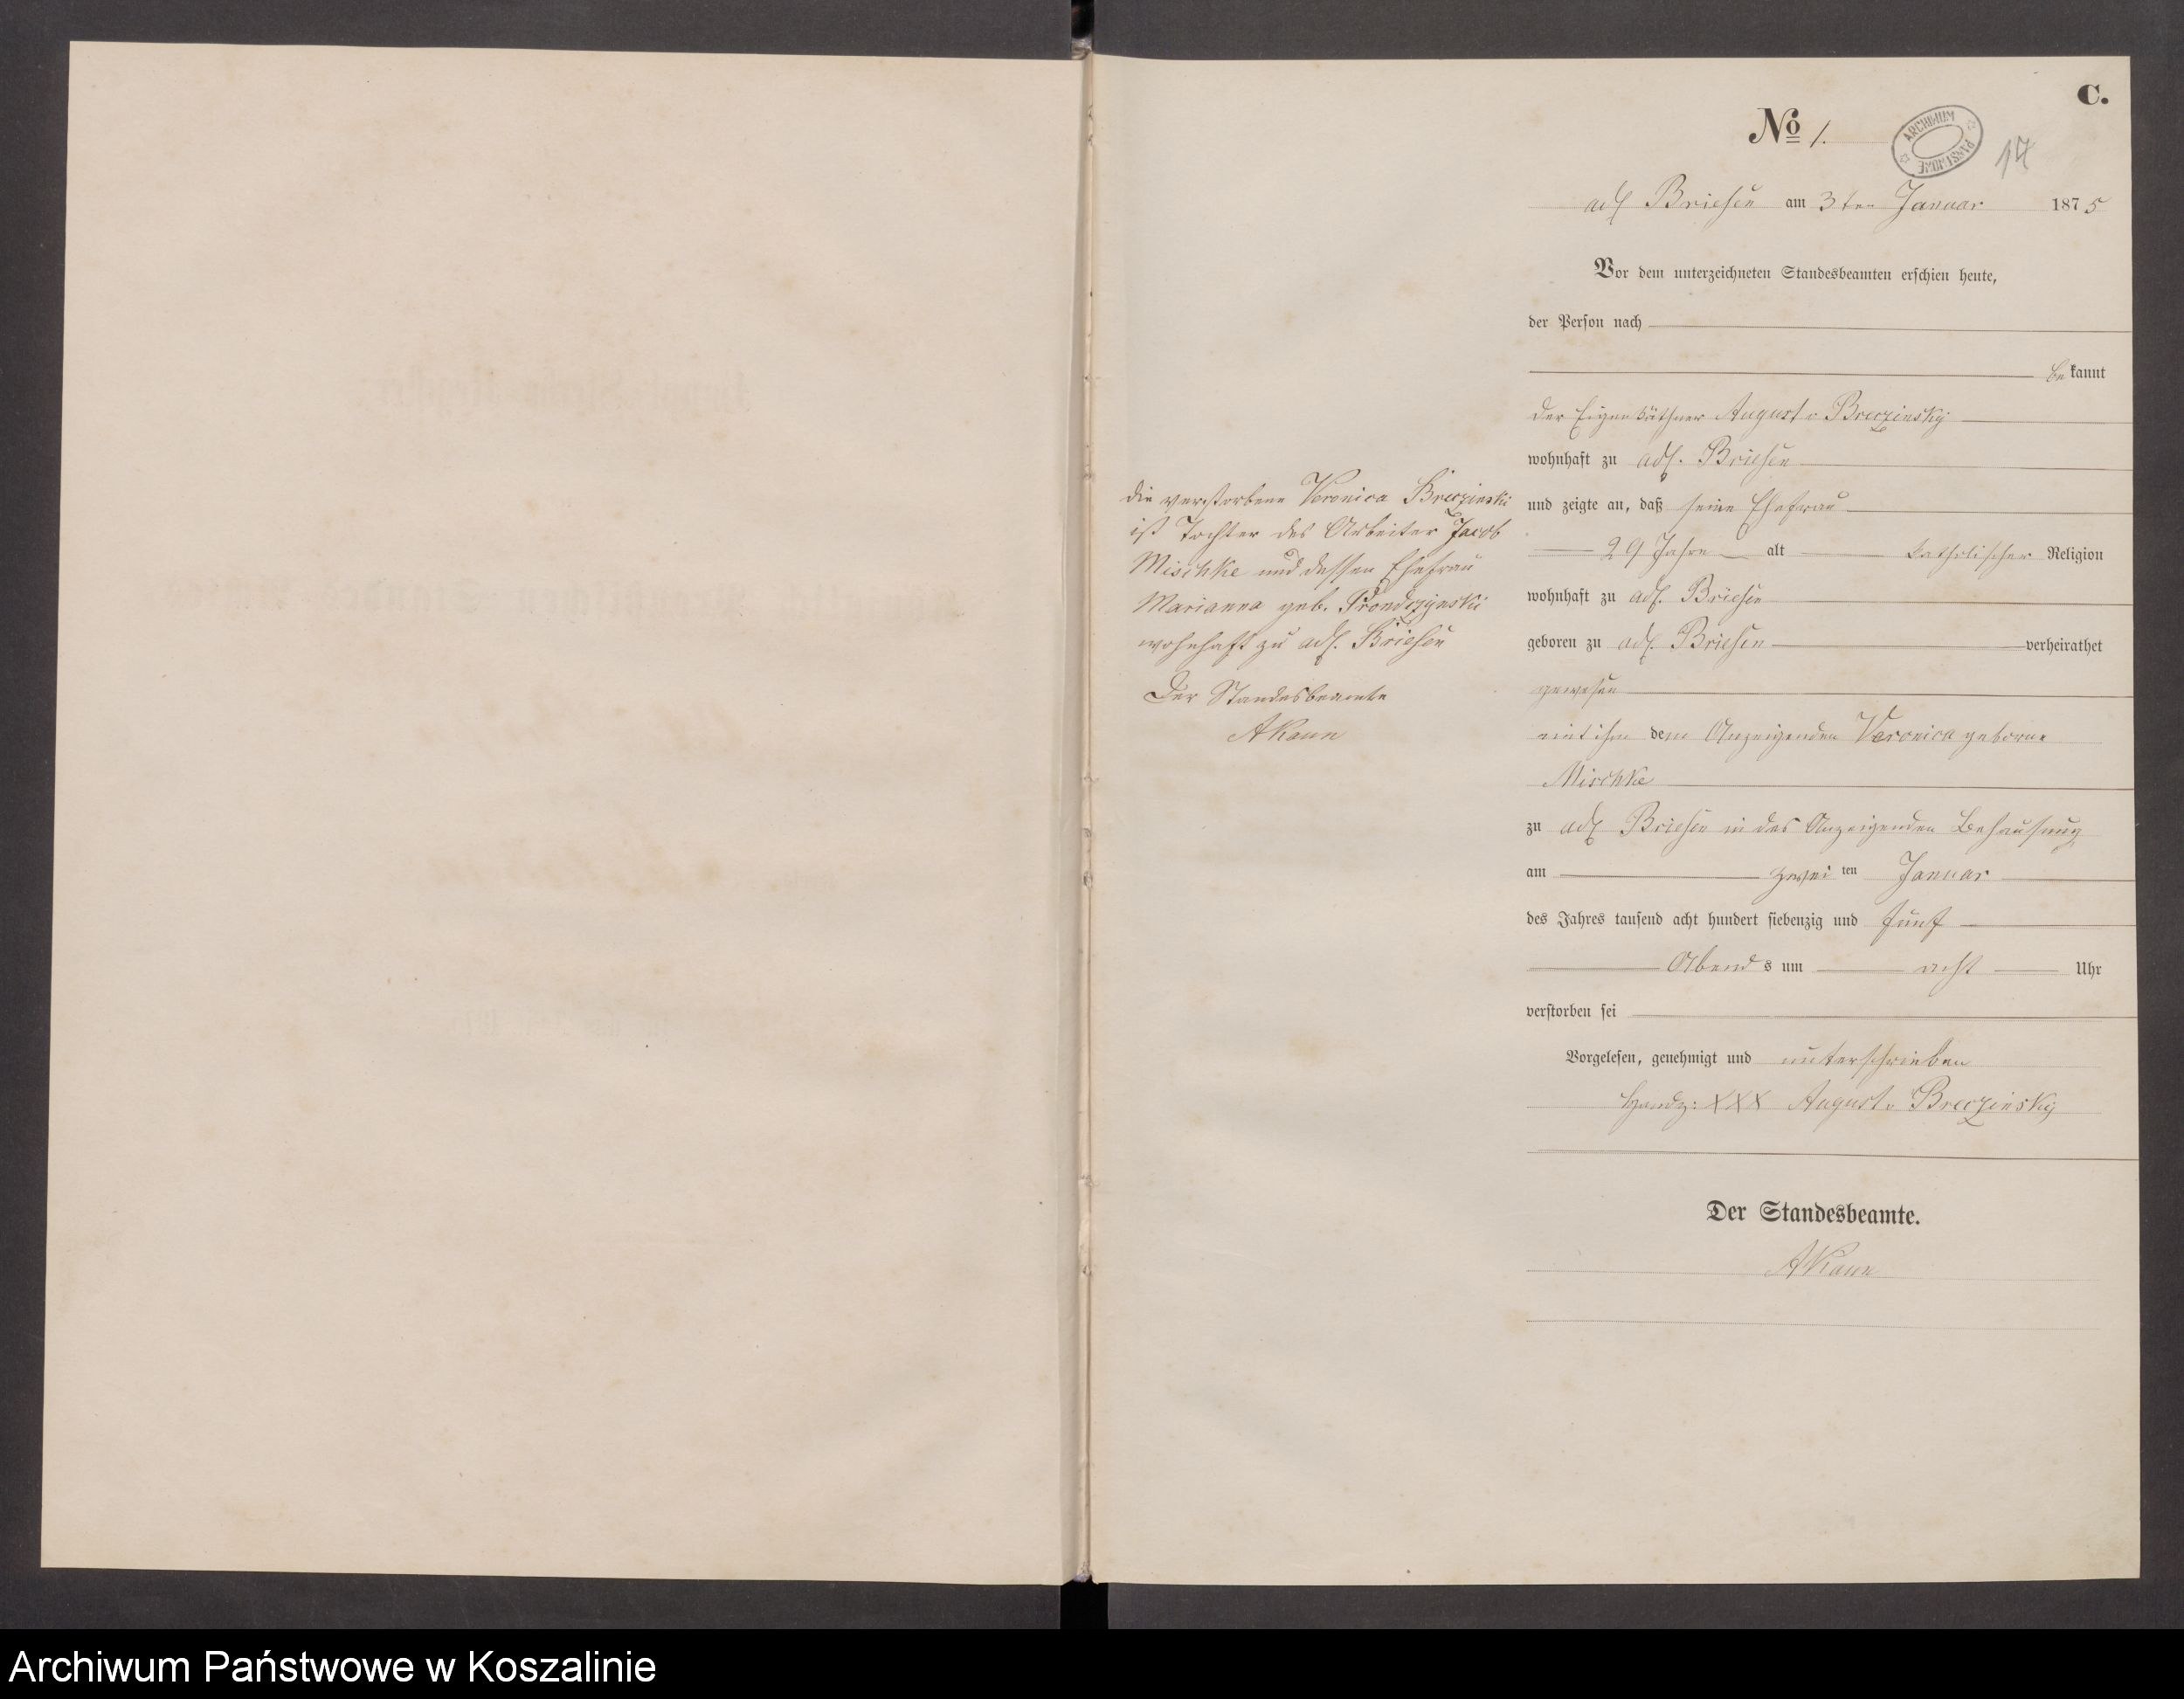 C.
No 1.
ARCHIWUM PAŃSTWOWE
17
adl Briesen am 3ten Januar 1875
Vor dem unterzeichneten Standesbeamten erschien heute,
der Person nach
bekannt
der Eigenkäthner August v Breczinsky
wohnhaft zu adl. Briesen
und zeigte an, daß seine Ehefrau
29 Jahre alt katholischer Religion
wohnhaft zu adl. Briesen
geboren zu adl. Briesen verheirathet
gewesen
mit ihm dem Anzeigenden Veronica geborne
Mischke
zu adl Briesen in des Anzeigenden Behausung
am zweiten Januar
des Jahres tausend acht hundert siebenzig und fünf
Abends um acht Uhr
verstorben sei
Vorgelesen, genehmigt und unterschrieben
Handz: XXX August v Breczinsky
Der Standesbeamte.
AKaun
die verstorbene Veronica Breczinski
ist Tochter des Arbeiter Jacob
Mischke und dessen Ehefrau
Marianna geb. Prondzynski
wohnhaft zu adl. Briesen
Der Standesbeamte
AKaun
Archiwum Państwowe w Koszalinie